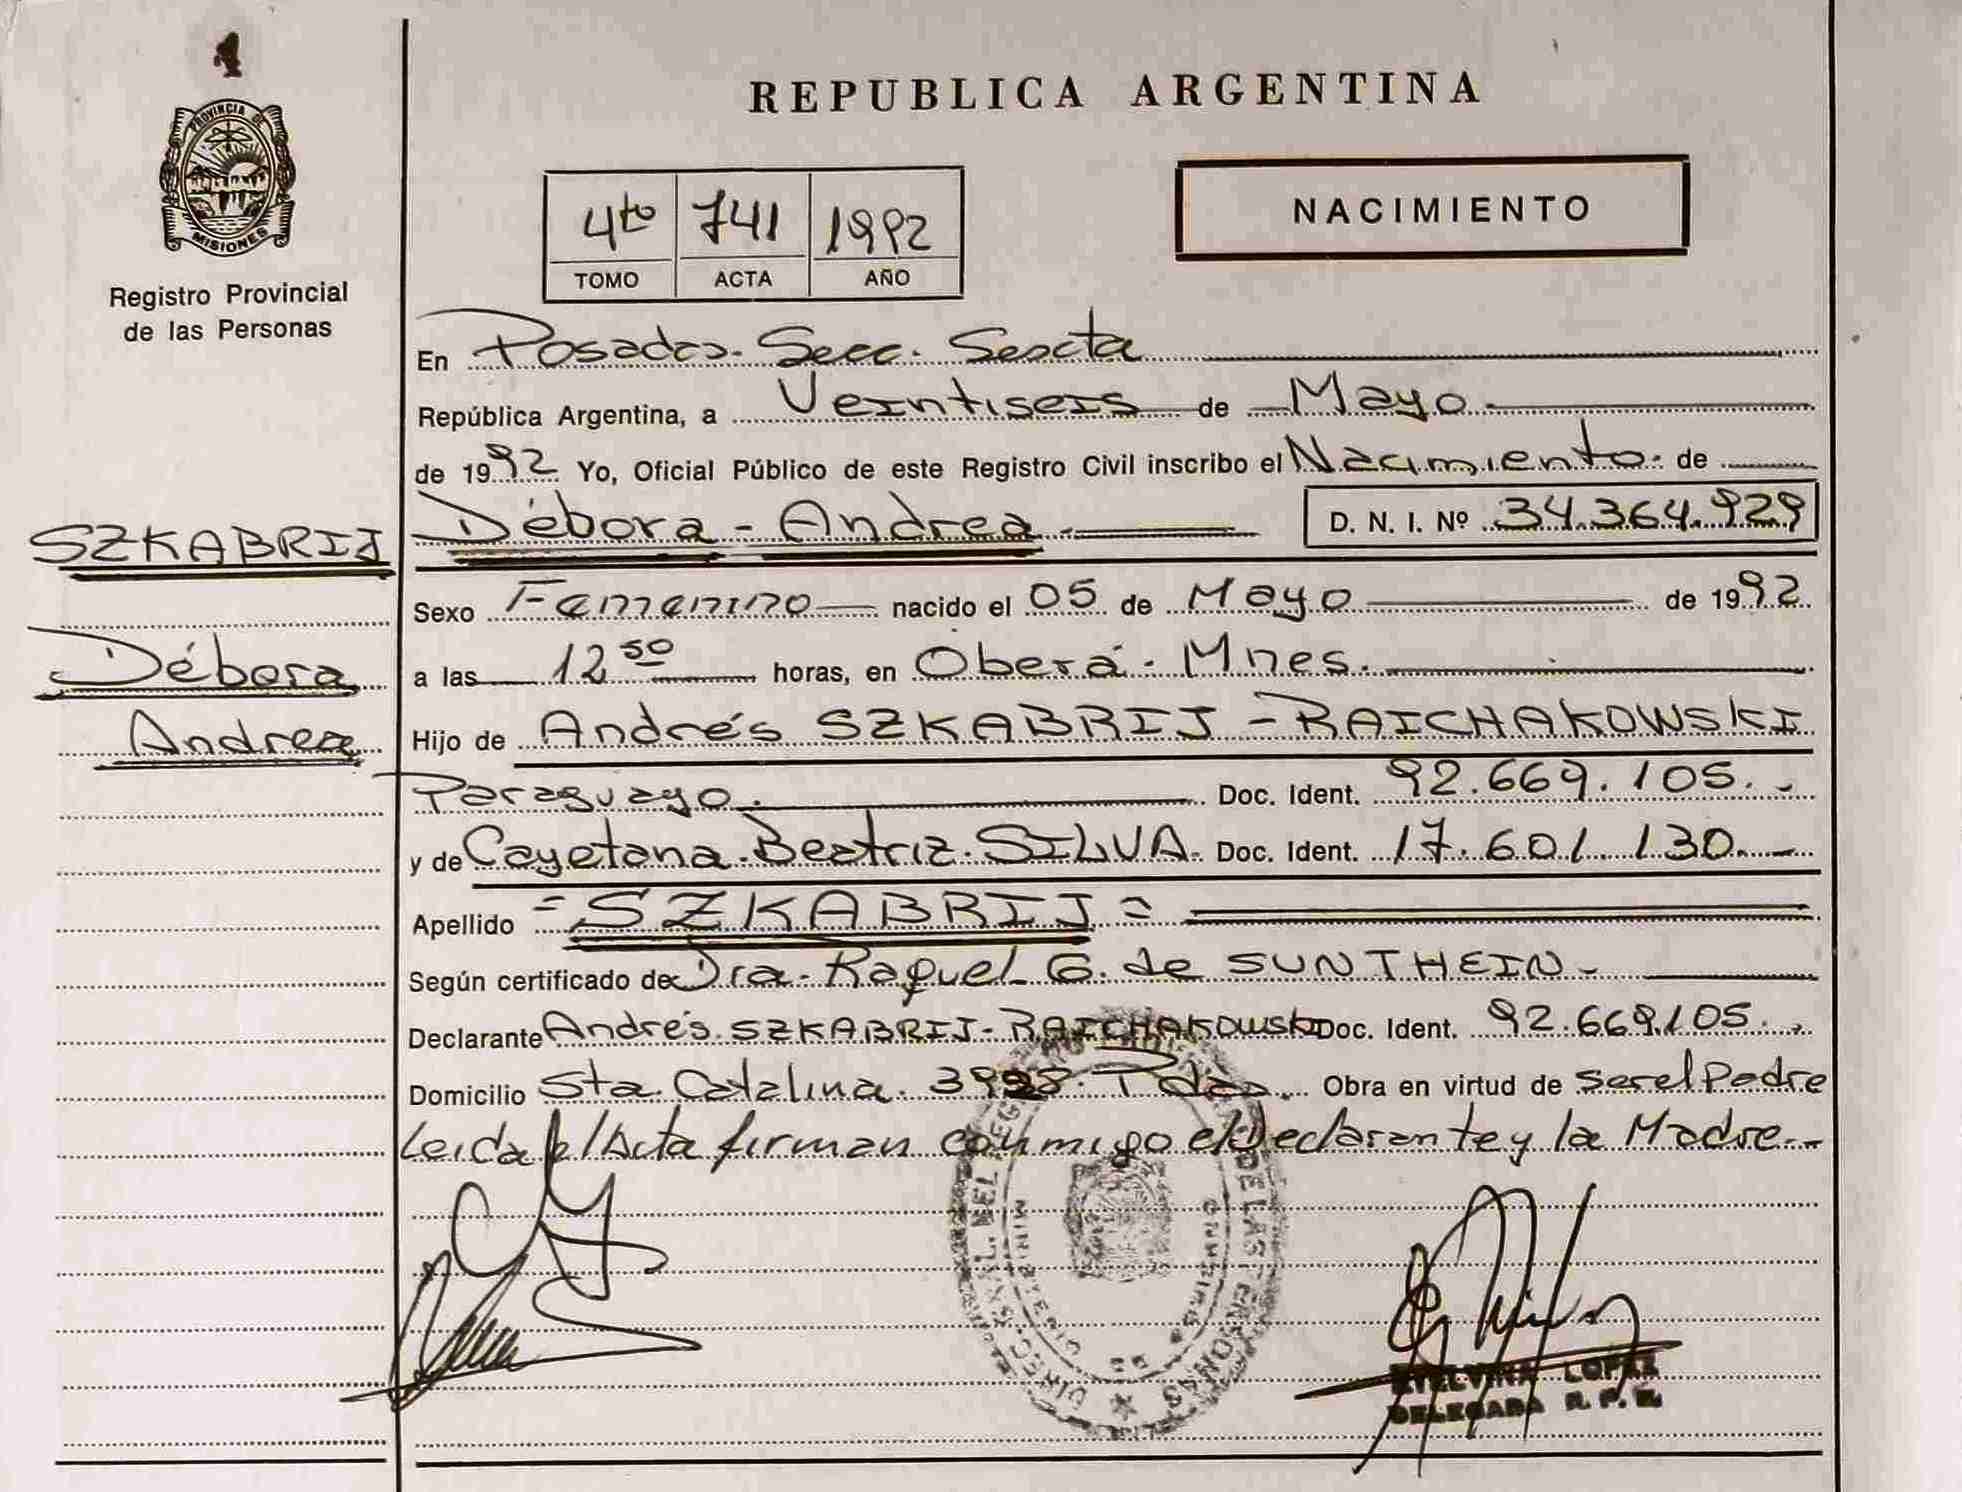 REPUBLICA ARGENTINA
PROVINCIA DE
MISIONES
Registro Provincial
de las Personas
4to 741 1992
TOMO ACTA AÑO
NACIMIENTO
En Posadas. Secc. Sexta
República Argentina, a Veintiseis de Mayo
de 1992 Yo, Oficial Público de este Registro Civil inscribo el Nacimiento de
SZKABRIJ
Débora
Andrea
Débora - Andrea D. N. I. Nº 34.364.929
Sexo Femenino nacido el 05 de Mayo de 1992
a las 12 50 horas, en Oberá - Mnes.
Hijo de Andrés SZKABRIJ - RAICHAKOWSKI
Paraguayo. Doc. Ident. 92.669.105.-
y de Cayetana Beatriz SILVA. Doc. Ident. 17.601.130.-
Apellido = SZKABRIJ =
Según certificado de Dra. Raquel G. de SUNTHEIN -
Declarante Andrés SZKABRIJ - RAICHAKOWSKI Doc. Ident. 92.669.105.
Domicilio Sta. Catalina. Pdas. Obra en virtud de ser el Padre
Leida el Acta firman conmigo el Declarante y la Madre.-
DIREC. GRAL. DEL REG. DE LAS PERSONAS
MINISTERIO DE GOBIERNO
ETELVINA LOPEZ
DELEGADA R. P. P.